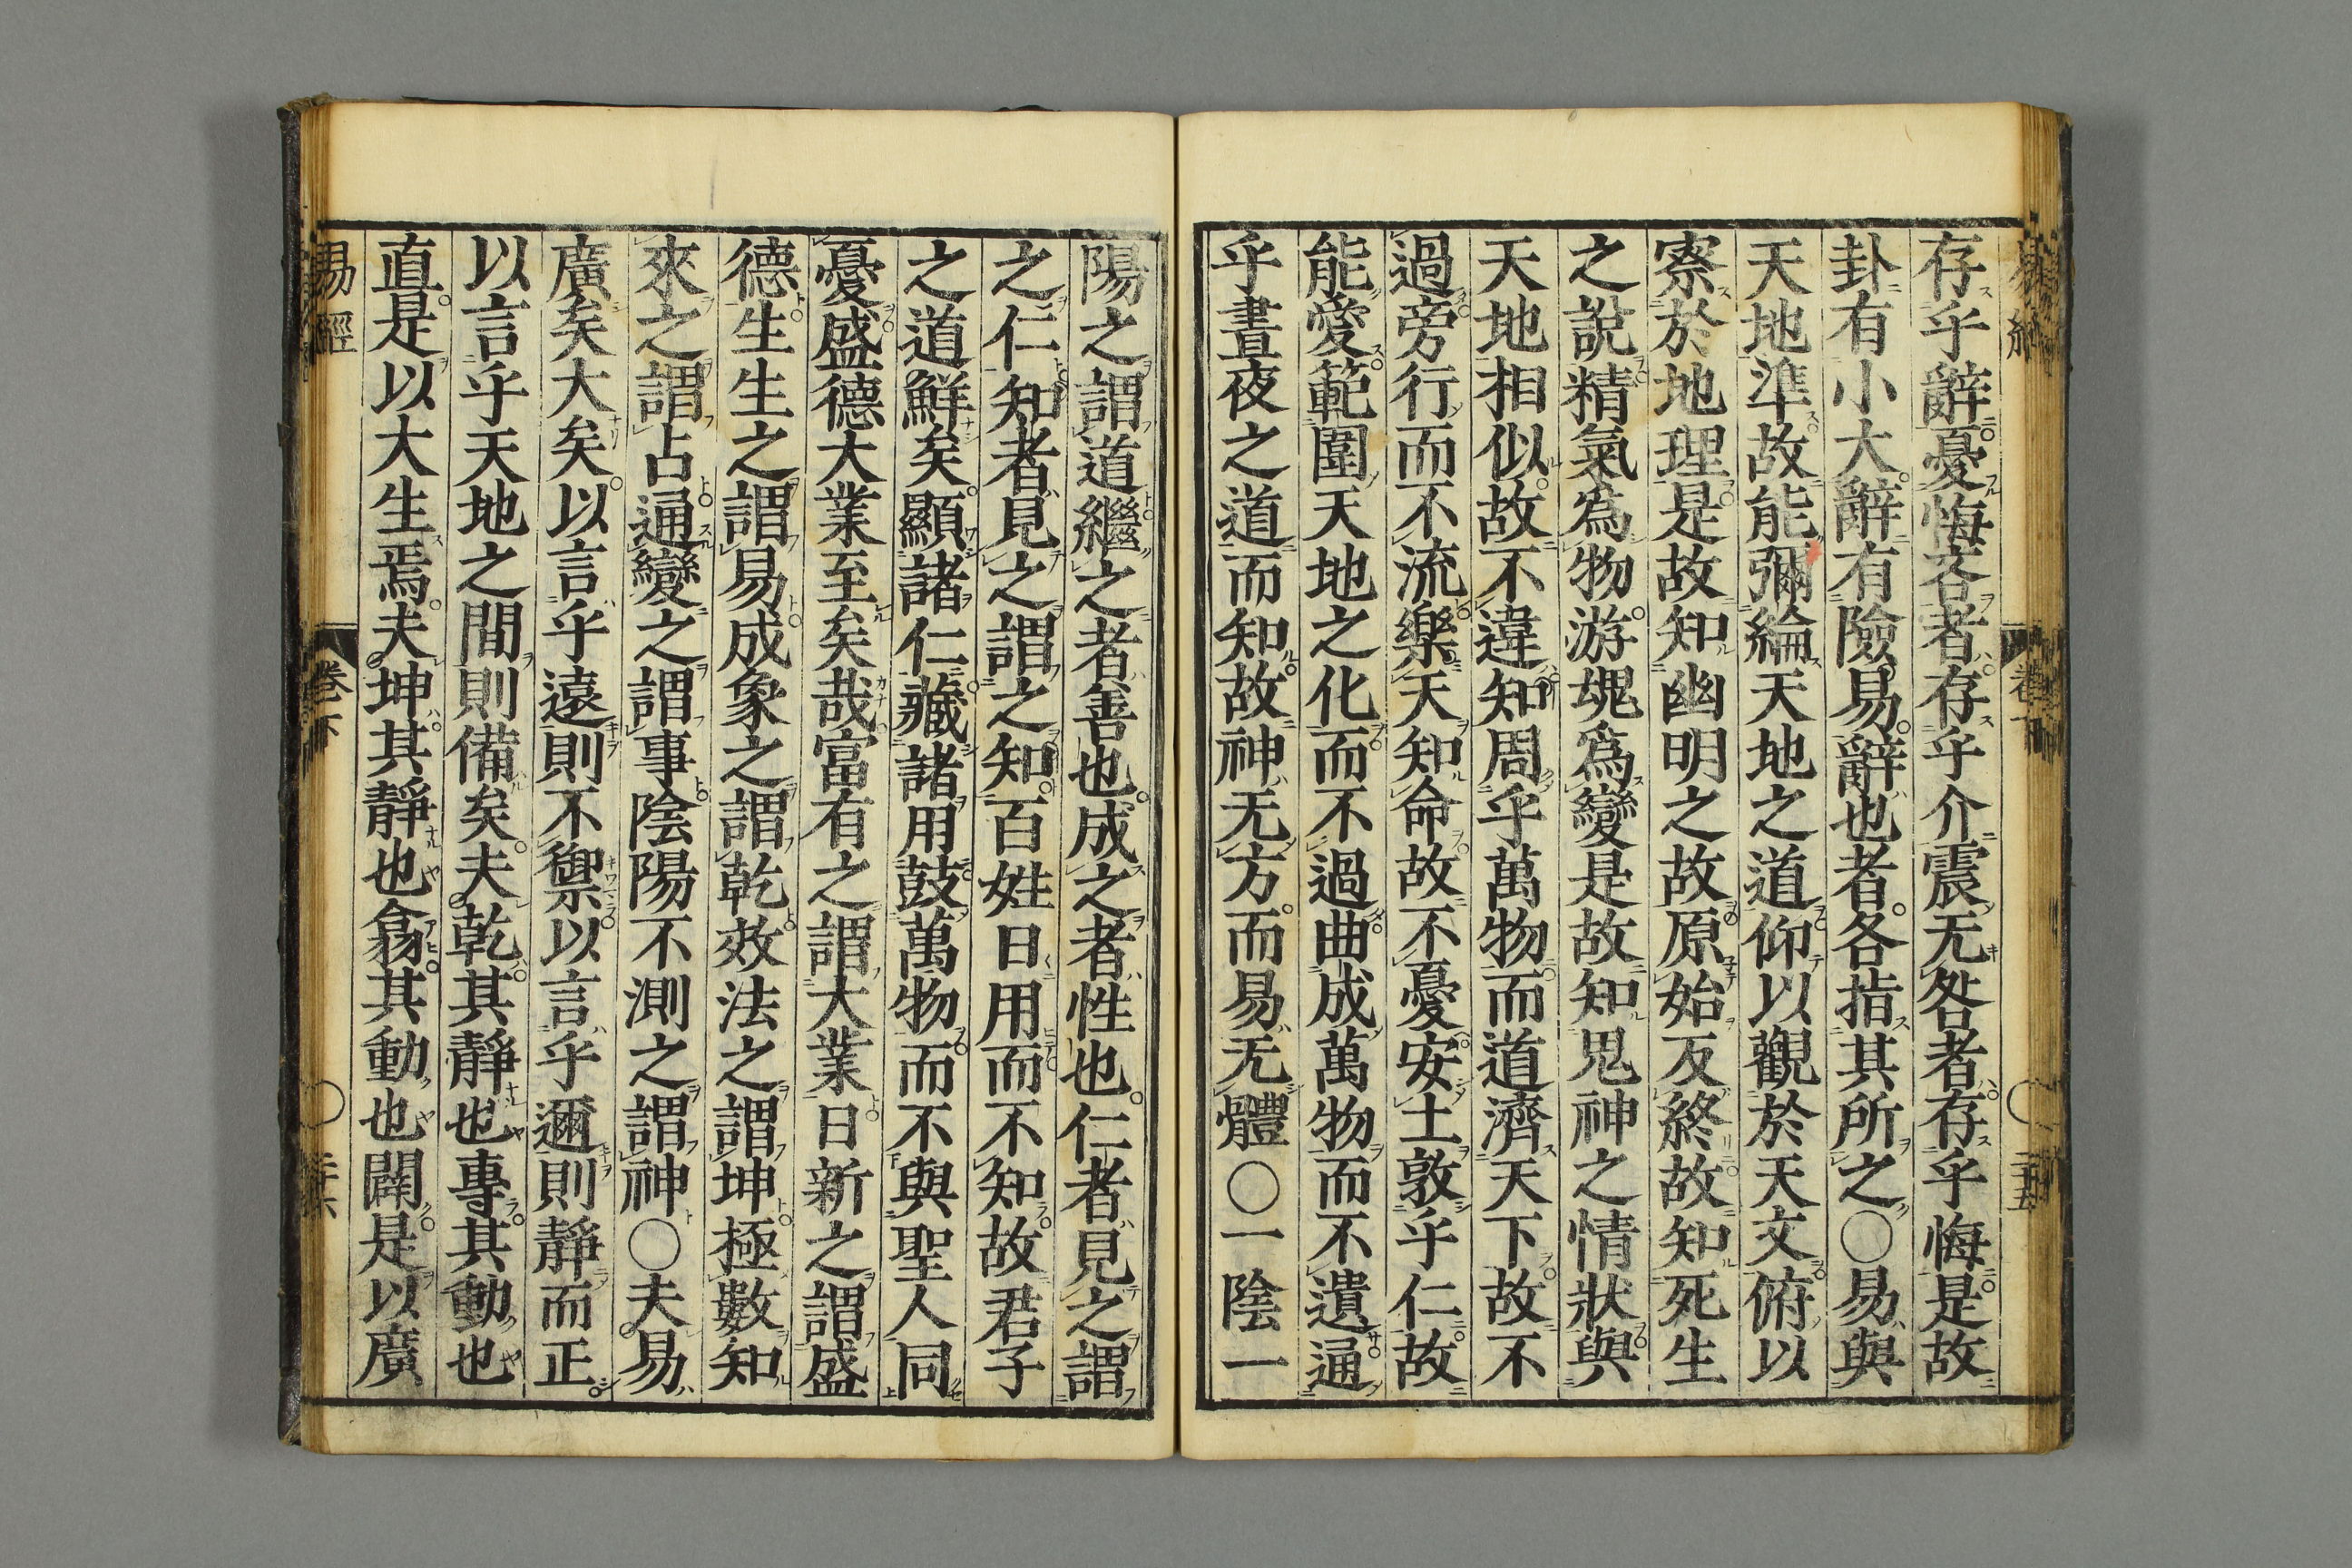 存乎辭憂悔吝者存乎介震无咎者存乎悔是故
卦有小大辭有險易辭也者各指其所之○易與
天地準故能彌綸天地之道仰以觀於天文俯以
察於地理是故知幽明之故原始反終故知死生
之說精氣爲物游魂爲變是故知鬼神之情狀與
天地相似故不違知周乎萬物而道濟天下故不
過旁行而不流樂天知命故不憂安土敦乎仁故
能愛範圍天地之化而不過曲成萬物而不遺通
乎晝夜之道而知故神无方而易无體○一陰一
陽之謂道繼之者善也成之者性也仁者見之謂
之仁知者見之謂之知百姓日用而不知故君子
之道鮮矣顯諸仁藏諸用鼓萬物而不與聖人同
憂盛德大業至矣哉富有之謂大業日新之謂盛
德生生之謂易成象之謂乾效法之謂坤極數知
來之謂占通變之謂事陰陽不測之謂神○夫易
廣矣大矣以言乎遠則不禦以言乎邇則靜而正
以言乎天地之間則備矣夫乾其靜也專其動也
直是以大生焉夫坤其靜也翕其動也闢是以廣
易經 卷下